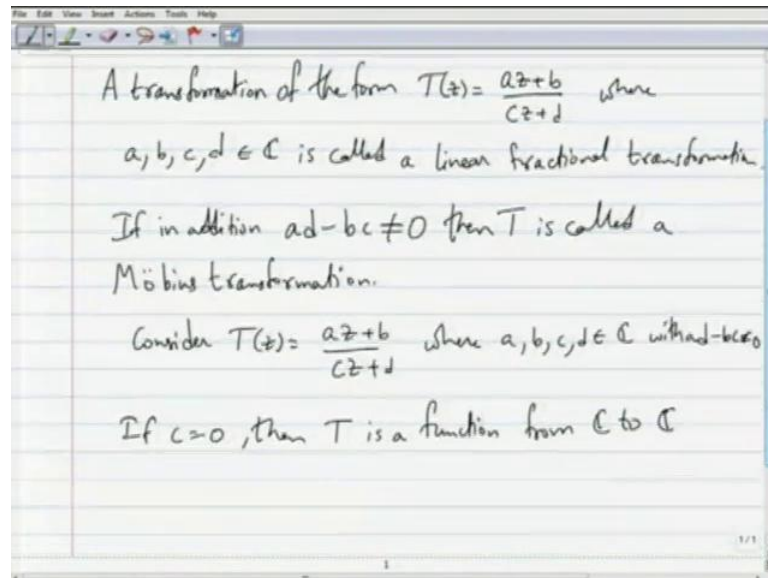 File Edit View Insert Actions Tools Help
A transformation of the form T(z) = (az+b)/(cz+d) where
a, b, c, d ∈ ℂ is called a linear fractional transformation.
If in addition ad-bc≠0 then T is called a
Möbius transformation.
Consider T(z) = (az+b)/(cz+d) where a, b, c, d ∈ ℂ with ad-bc≠0
If c=0, then T is a function from ℂ to ℂ
1/1
1